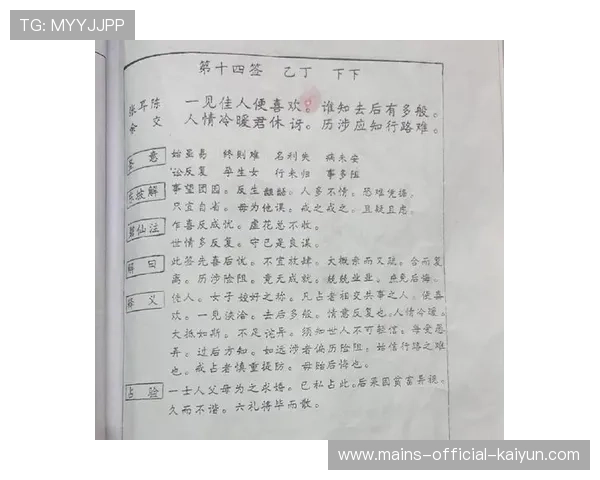 TG: MYYJJPP
第十四签 乙丁 下下
张耳陈余交
一见佳人便喜欢。谁知去后有多般。
人情冷暖君休讶。历涉应知行路难。
圣意
始虽易 终则难 名利失 病未安
讼反复 孕生女 行未归 事多阻
东坡解
事望团圆。反生龃龉。人多不情。恐难凭据。
只宜自省。毋为他误。戒之戒之。且疑且虑。
碧仙注
乍喜反成忧。虚花总不收。
世情多反复。守己是良谋。
解曰
此签先喜后忧。不宜放肆。大概亲而又疏。合而复
离。历涉险阻。竟无成就。兢兢业业。庶免后悔。
释义
佳人。女子姣好之称。凡占者相交共事之人。便喜
欢。一见浃洽。去后多般。情意反复也。人情冷暖。
大抵如斯。不足诧异。须知世人不可轻信。每受愚
弄。过后方知。如远涉者偏历险阻。始信行路之难
也。戒占者慎重提防。毋贻后悔也。
占验
一士人父母为之求婚。已私占此。后果因贫富异说。
久而不谐。六礼将毕而散。
www.mains-official-kaiyun.com